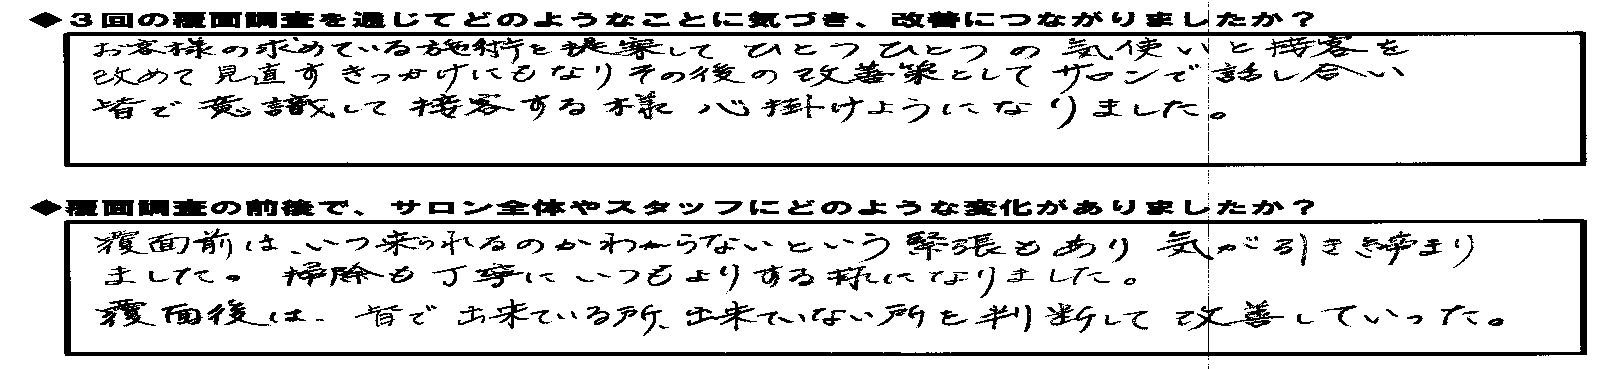 ◆３回の覆面調査を通じてどのようなことに気づき、改善につながりましたか？
お客様の求めている施術を提案して ひとつひとつの 気使いと接客を
改めて見直すきっかけにもなりその後の改善策としてサロンで話し合い
皆で意識して接客する様心掛けようになりました。
◆覆面調査の前後で、サロン全体やスタッフにどのような変化がありましたか？
覆面前は、いつ来られるのかわからないという緊張もあり 気が引き締まり
ました。掃除も丁寧にいつもよりする様になりました。
覆面後は、皆で出来ている所、出来ていない所を判断して改善していった。